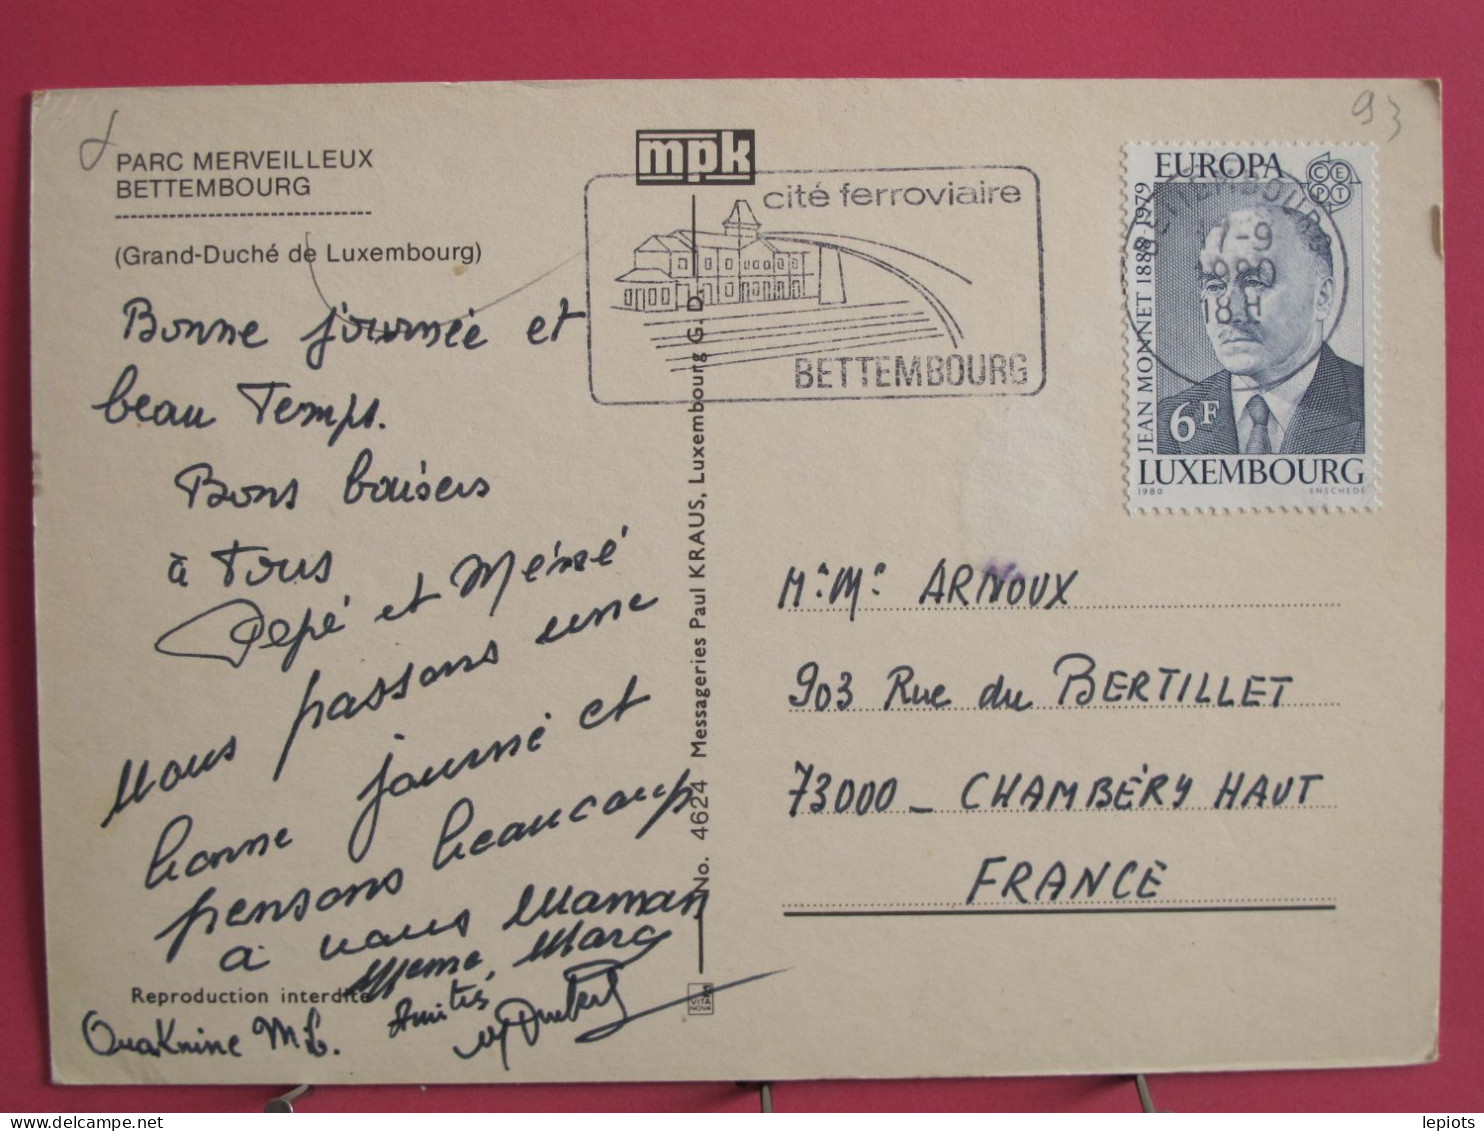 93
PARC MERVEILLEUX
BETTEMBOURG
(Grand-Duché de Luxembourg)
mpk
cité ferroviaire
BETTEMBOURG
EUROPA
CEPT
JEAN MONNET 1888-1979
BETTEMBOURG
17-9
1980
18H
6F
LUXEMBOURG
1980 ENSCHEDÉ
Bonne journée et
beau Temps.
Bons baisers
à Tous
Pepé et Mémé
Nous passons une
bonne journé et
pensons beaucoup
à vous Maman
Meme, Marc
Amitiés
Ouaknine M L.
Reproduction interdite
No. 4624 Messageries Paul KRAUS, Luxembourg G. D.
VITA
NOVA
Mr Me ARNOUX
903 Rue du BERTILLET
73000 - CHAMBÉRY HAUT
FRANCE
lepiots